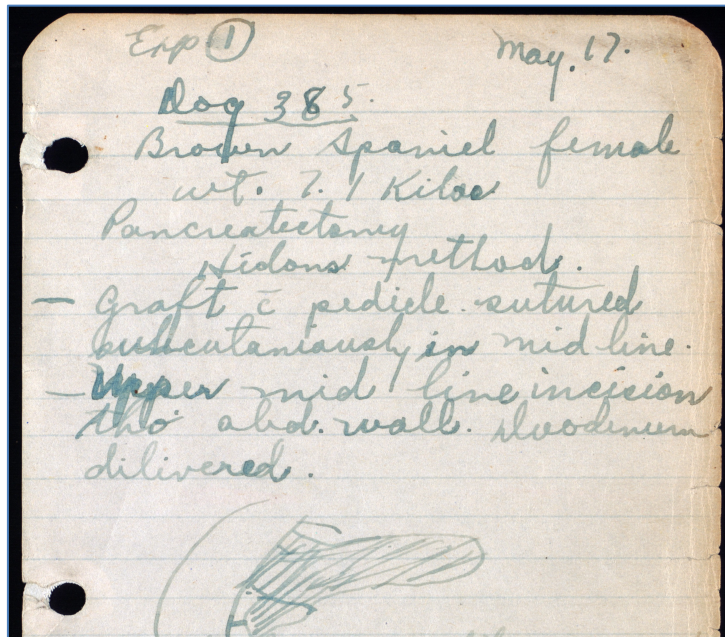 Exp ①
May. 17.
Dog 385.
Brown Spaniel female
wt. 7.1 Kilos
Pancreatectomy
Hédons method.
— Graft c̄ pedicle sutured
subcutaniously in mid line.
— Upper mid line incision
thó abd. wall. Duodenum
dilivered.